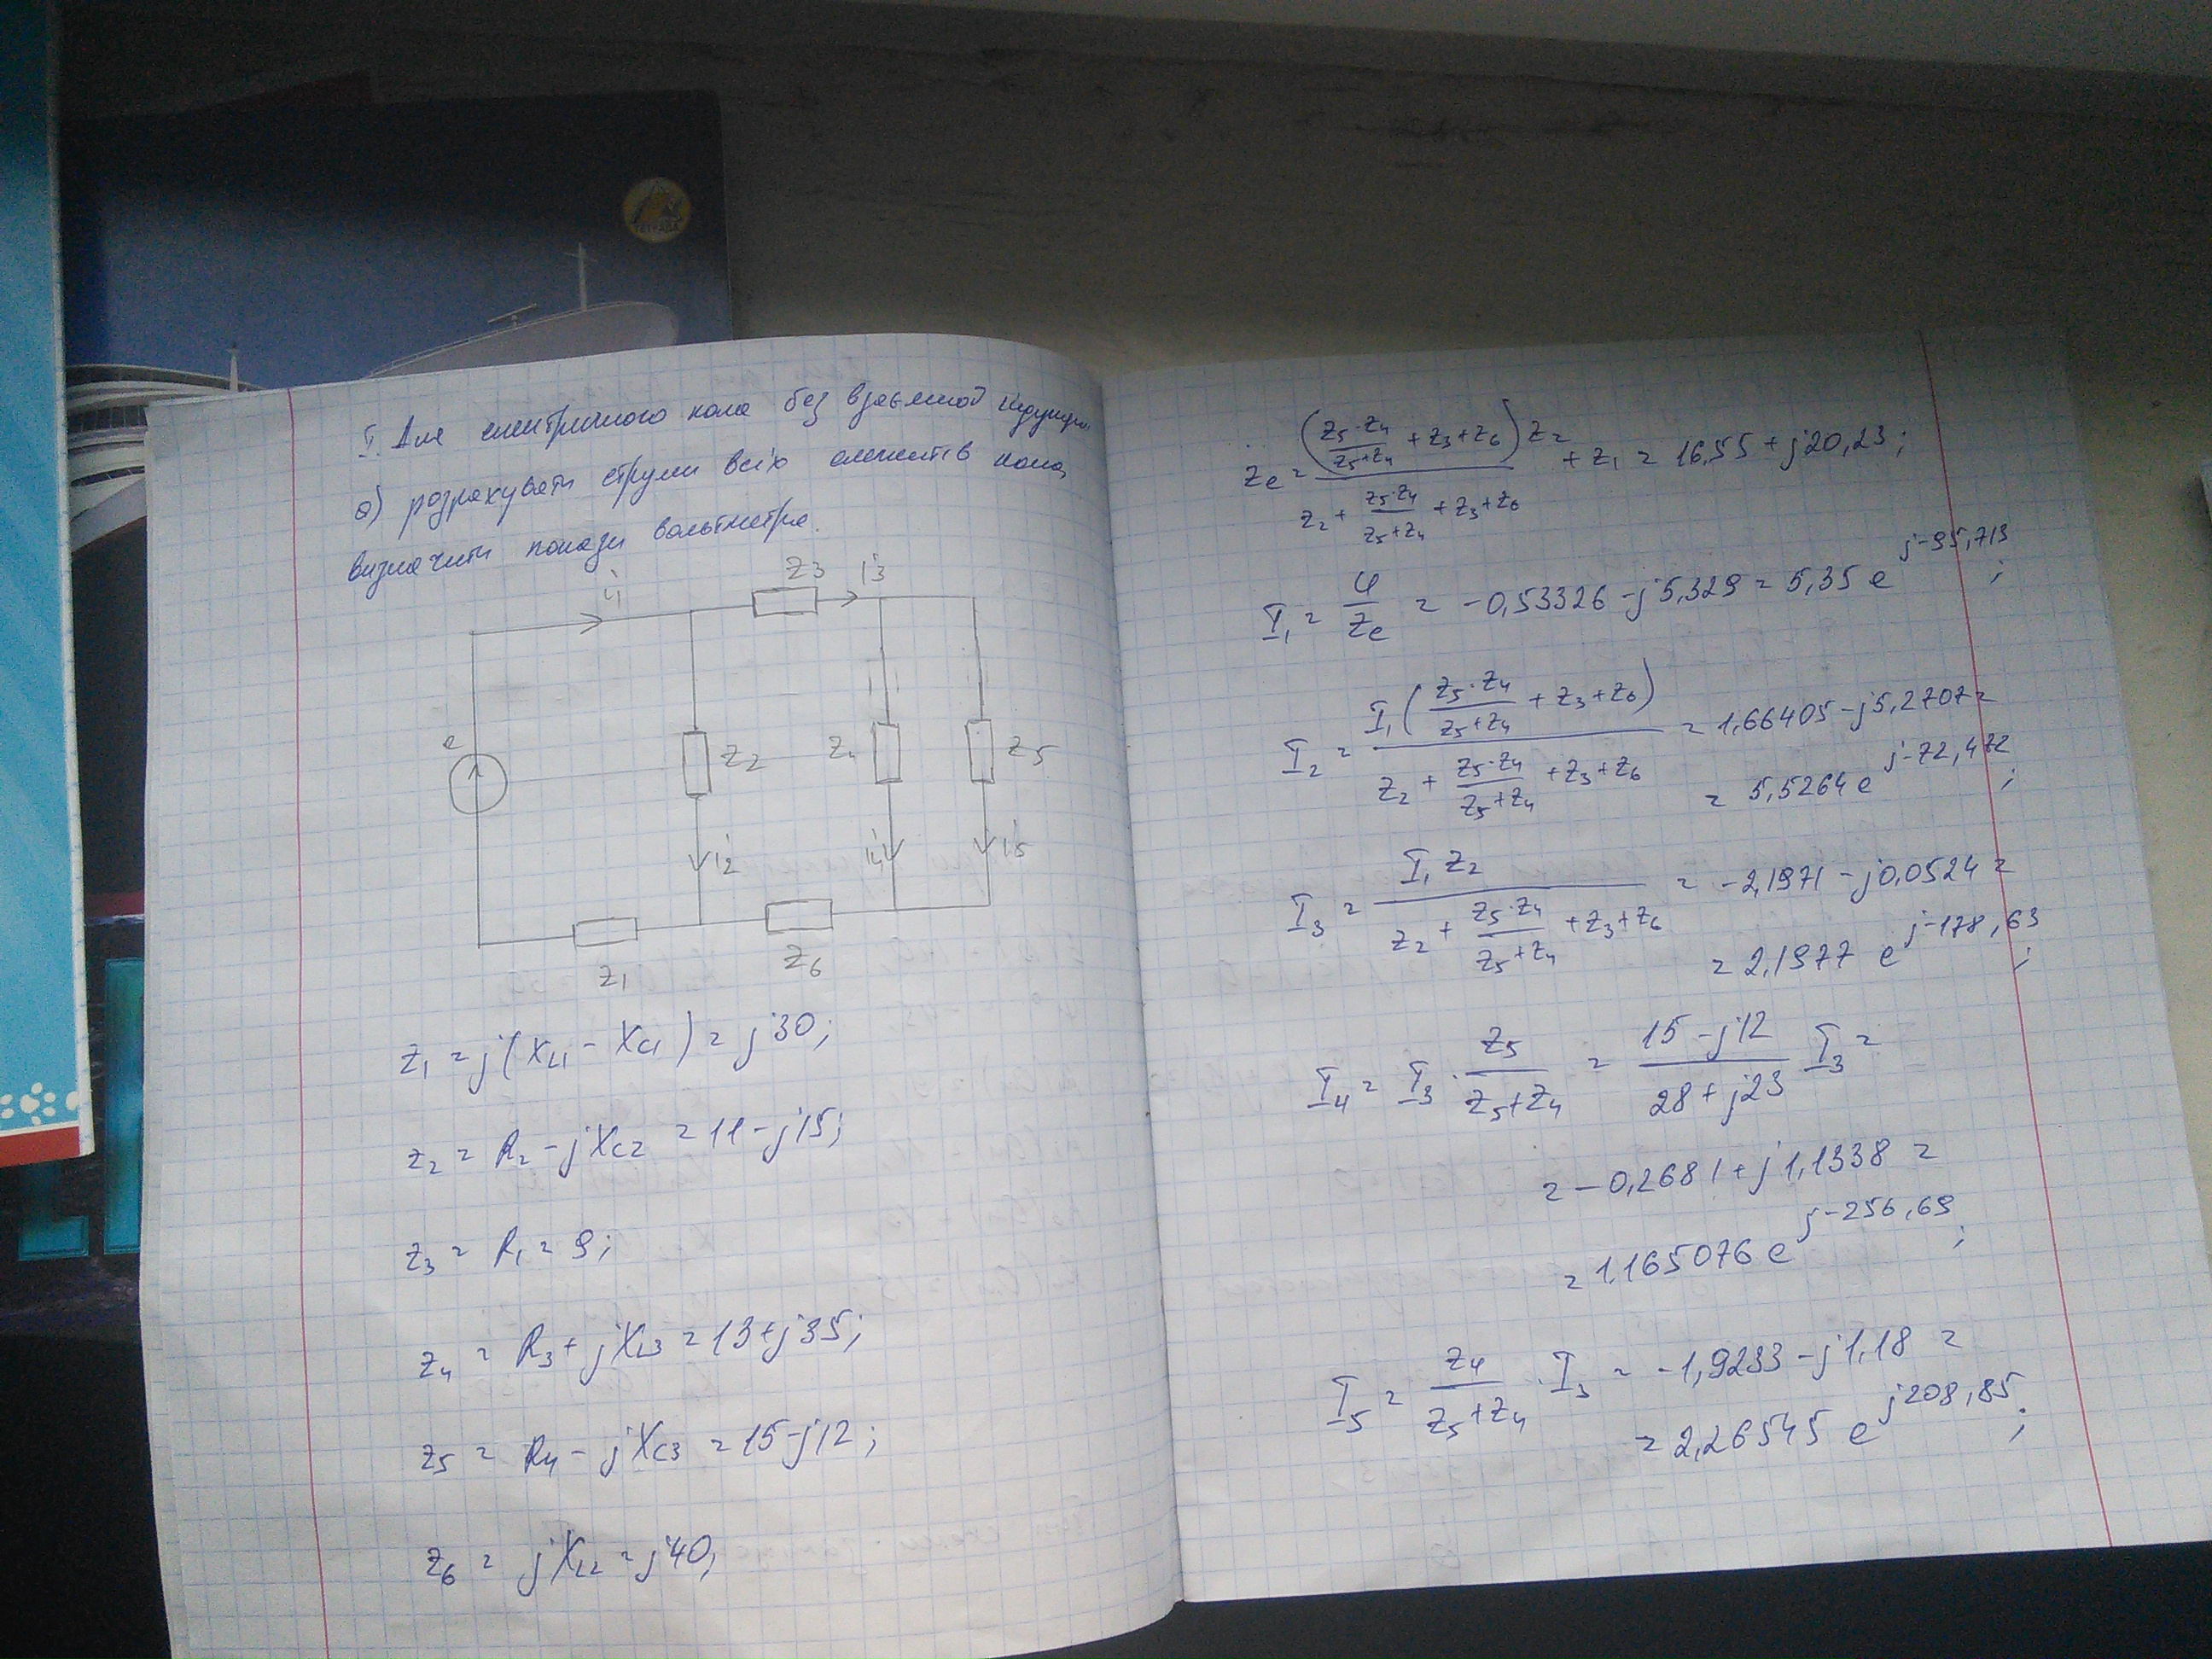 I. Для електричного кола без взаємної індукції
а) розрахувати струми всіх елементів кола,
визначити покази вольтметра.
i1
Z3 i3
e
Z2 Z4 Z5
i2 i4 i5
Z1 Z6
Z1 = j(XL1 - XC1) = j30;
Z2 = R2 - jXC2 = 11 - j15;
Z3 = R1 = 9;
Z4 = R3 + jXL3 = 13 + j35;
Z5 = R4 - jXC3 = 15 - j12;
Z6 = jXL2 = j40;
Ze = ((Z5·Z4)/(Z5+Z4) + Z3 + Z6) Z2 / (Z2 + (Z5·Z4)/(Z5+Z4) + Z3 + Z6) + Z1 = 16,55 + j20,23;
I1 = φ/Ze = -0,53326 - j5,329 = 5,35 e^j-95,713;
I2 = I1((Z5·Z4)/(Z5+Z4) + Z3 + Z6) / (Z2 + (Z5·Z4)/(Z5+Z4) + Z3 + Z6) = 1,66405 - j5,2707 =
= 5,5264 e^j-72,472;
I3 = I1 Z2 / (Z2 + (Z5·Z4)/(Z5+Z4) + Z3 + Z6) = -2,1971 - j0,0524 =
= 2,1977 e^j-178,63;
I4 = I3 · Z5/(Z5+Z4) = (15 - j12)/(28 + j23) I3 =
= -0,2681 + j1,1338 =
= 1,165076 e^j-256,69;
I5 = Z4/(Z5+Z4) · I3 = -1,9233 - j1,18 =
= 2,26545 e^j208,85;
ТЕТРАДА